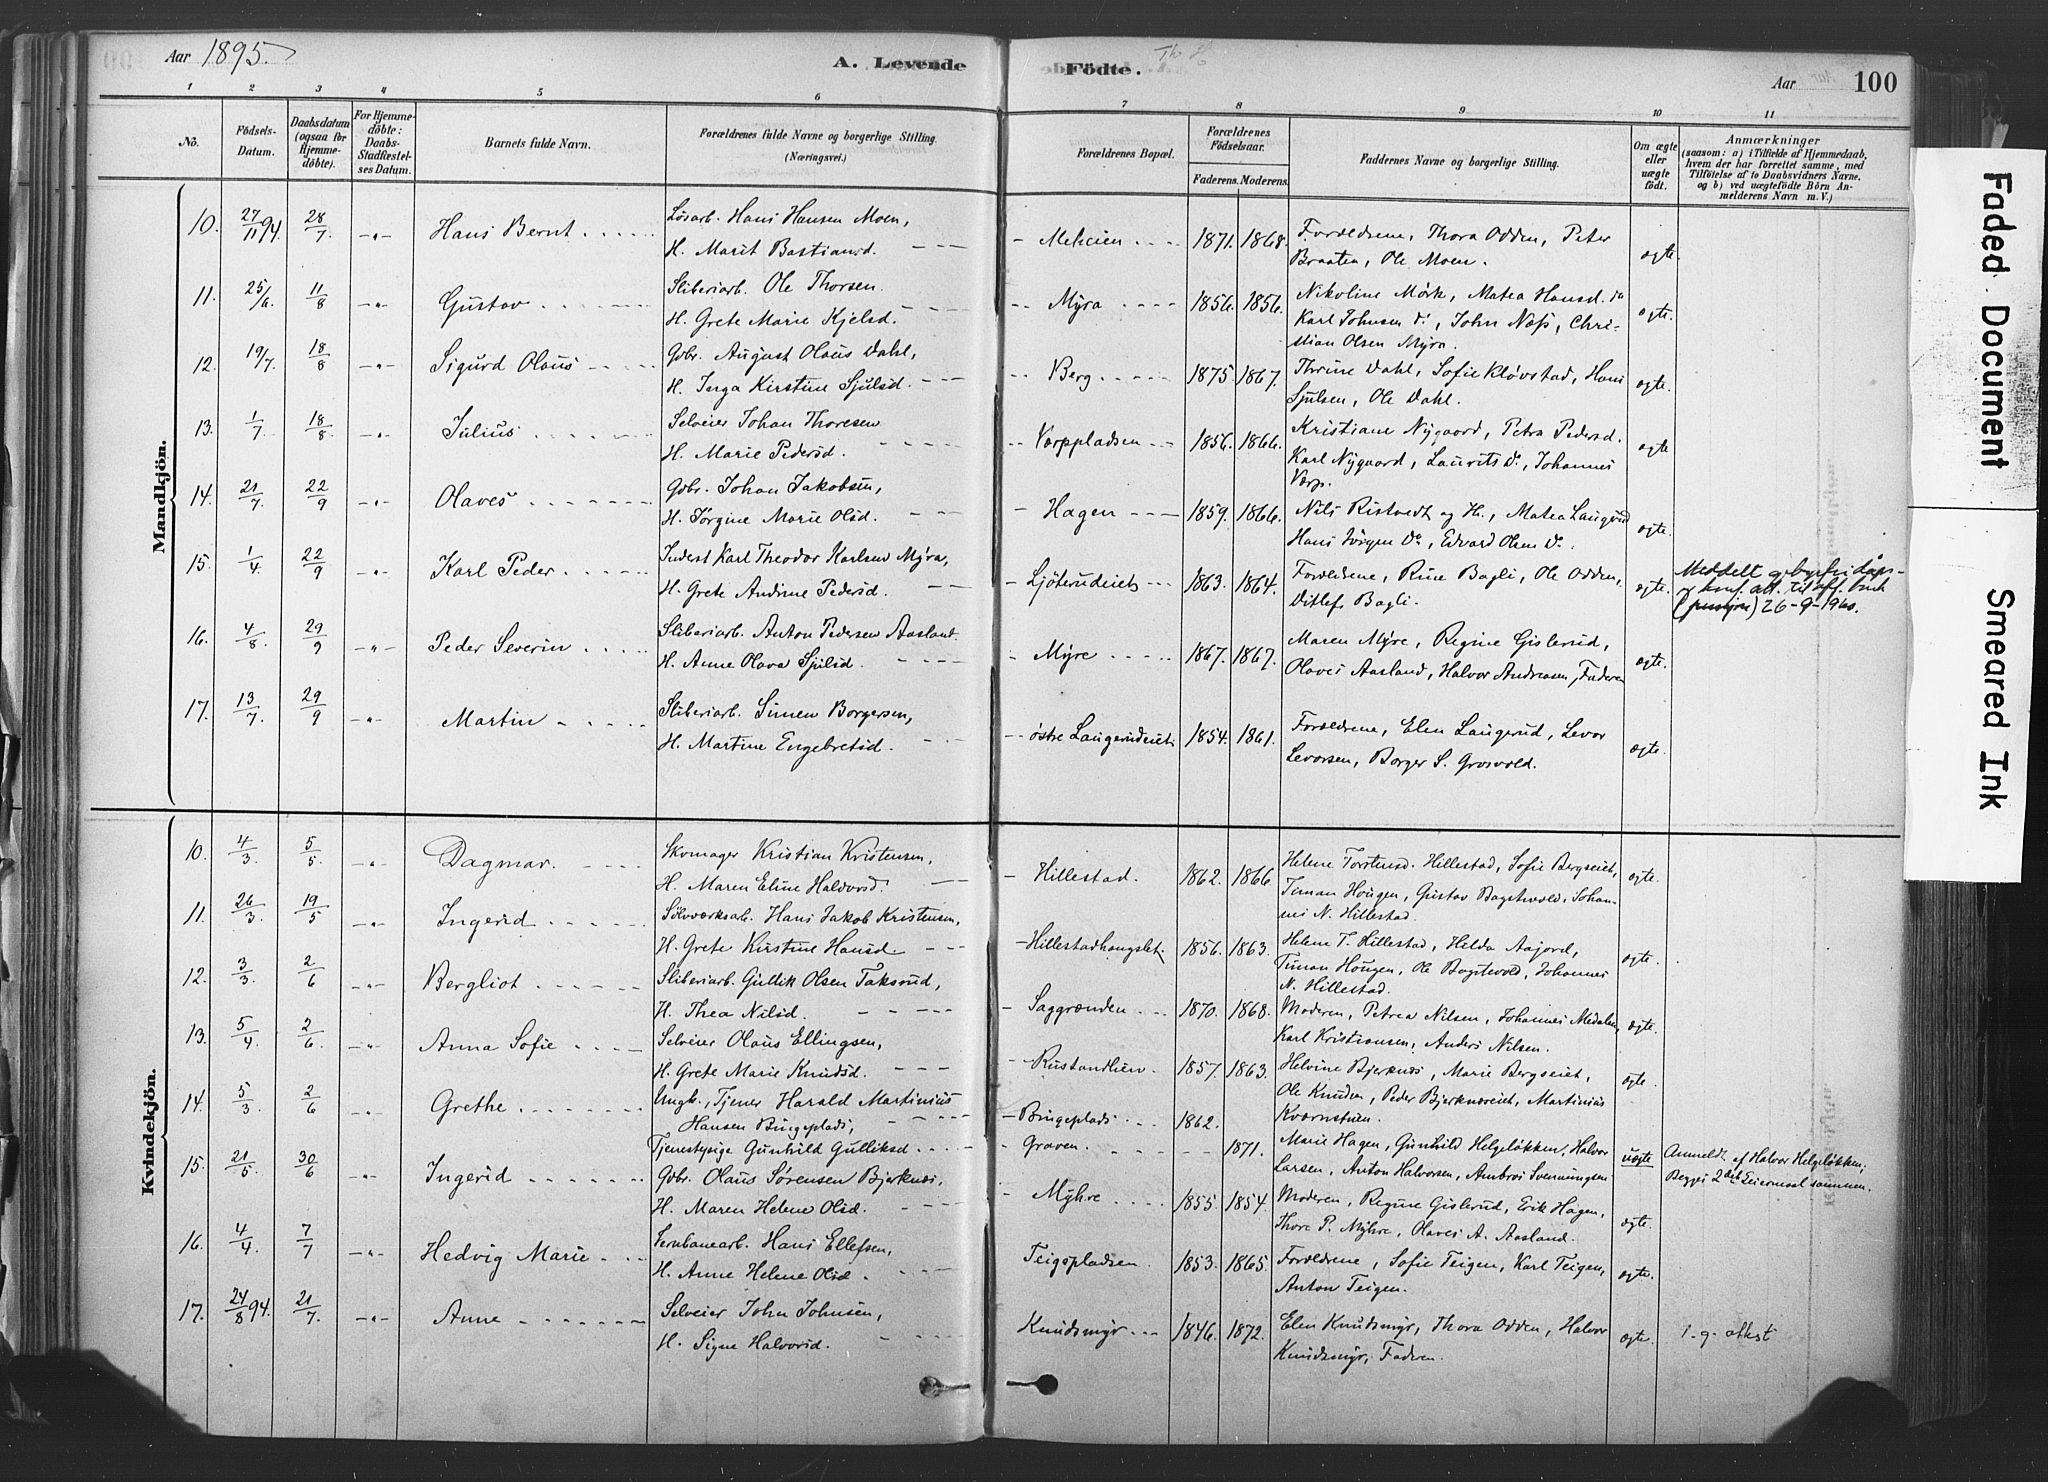 Aar 1895.
A. Levende
Födte.
Aar
100
1 2 3 4 5 6 7 8 9 10 11
No.
Födsels-
Datum.
Daabsdatum
(ogsaa for
Hjemme-
döbte).
For Hjemme-
döbte:
Daabs-
Stadfæstel-
ses Datum.
Barnets fulde Navn.
Forældrenes fulde Navne og borgerlige Stilling.
(Næringsvei.)
Forældrenes Bopæl.
Forældrenes
Födselsaar.
Faderens. Moderens.
Faddernes Navne og borgerlige Stilling.
Om ægte
eller
uægte
födt.
Anmærkninger
(saasom: a) i Tilfælde af Hjemmedaab,
hvem der har forrettet samme, med
Tilföielse af to Daabsvidners Navne,
og b) ved uægtefödte Börn An-
melderens Navn m. V.)
Mandkjön.
10. 27/11 94. 28/7 -"- Hans Bernt
Løsarb. Hans Hansen Moen,
H. Marit Bastiansd.
1871. 1868.
Forældrene, Thora Odden, Peter
Braaten, Ole Moen.
ægte.
11. 25/6. 11/8 -"- Gustav
Sliberiarb. Ole Thorsen.
H. Grete Marie Kjelsd.
Myra 1856. 1856.
Nikoline Mørk, Matea Hansd. do
Karl Johnsen do, John Næss, Chri-
stian Olsen Myra.
ægte.
12. 19/7. 18/8 -"- Sigurd Olaus
Gdbr. August Olaus Dahl,
H. Inga Kirstine Sjulsd.
Berg 1875 1867.
Thrine Dahl, Sofie Kløvstad, Hans
Sjulsen, Ole Dahl.
ægte.
13. 1/7 18/8 -"- Julius
Selveier Johan Thoresen
H. Marie Pedersd.
Værppladsen 1856. 1866.
Kristiane Nygaard, Petra Pedersd.
Karl Nygaard, Laurits do, Johannes
Værp.
ægte
14. 21/7 22/9 -"- Olaves
Gdbr. Johan Jakobsen,
H. Jørgine Marie Olsd.
Hagen 1859. 1866.
Nils Ristvedt og H., Matea Laugerud
Hans Jørgen do, Edvard Olsen do.
ægte.
15. 1/4 22/9 -"- Karl Peder
Inderst Karl Theodor Karlsen Myra,
H. Grete Andrine Pedersd.
Ljøterudeiet 1863. 1864.
Forældrene, Rine Bagli, Ole Odden,
Ditlefs Bagli.
ægte.
Meddelt gebyrfri dåps-
konf. att. til off. bruk
26-9-1960.
16. 4/8 29/9 -"- Peder Severin
Sliberiarb. Anton Pedersen Aasland.
H. Anne Olava Sjulsd.
Myre 1867. 1867.
Maren Myre, Regine Gislerud,
Olaves Aasland, Halvor Andreasen, Faderen
ægte.
17. 13/7 29/9 -"- Martin
Sliberiarb. Simen Borgersen,
H. Martine Engebretsd.
østre Laugerudeiet 1854. 1861.
Forældrene, Elen Laugerud, Levor
Levorsen, Borger S. Grosvold.
ægte.
Kvindekjön.
10. 4/3 5/5 -"- Dagmar.
Skomager Kristian Kristensen,
H. Maren Eline Halvorsd.
Hillestad. 1862. 1866.
Helene Torstensd. Hillestad, Sofie Bergseiet,
Timan Hougen, Gustav Bagstevold, Johan-
nes N. Hillestad.
ægte.
11. 26/3 19/5 -"- Ingerid
Sølvværksarb. Hans Jakob Kristensen,
H. Grete Kirstine Hansd.
Hillestadhougslet 1856. 1863.
Helene T. Hillestad, Helda Aajord,
Timan Hougen, Ole Bagstevold, Johannes
N. Hillestad.
ægte.
12. 3/3 2/6 -"- Bergliot
Sliberiarb. Gullik Olsen Taksrud,
H. Thea Nilsd.
Saggrænden 1870. 1868.
Moderen, Petrea Nilsen, Johannes Medalen,
Karl Kristiansen, Anders Nilsen.
ægte.
13. 5/4 2/6 -"- Anna Sofie
Selveier Olaus Ellingsen,
H. Grete Marie Knudsd.
Rustandlien 1857. 1863.
Helvine Bjerknæs, Marie Bergseiet,
Ole Knudsen, Peder Bjerknæseiet, Martinius
Kværnstuen.
ægte.
14. 5/3 2/6 -"- Grethe
Ungk., Tjener Harald Martinius
Hansen Bingeplads,
Tjenestepige Gunhild Gulliksd.
Bingeplads 1862.
Graven. 1871.
Marie Hagen, Gunhild Helgeløkken, Halvor
Larsen, Anton Halvorsen, Ambros Svenningsen
uægte
Anmeldt af Halvor Helgeløkken;
Begges 2det Leiermaal sammen.
15. 21/5. 30/6 -"- Ingerid
Gdbr. Olaus Sørensen Bjerknæs,
H. Maren Helene Olsd.
Myhre 1855. 1854.
Moderen, Regine Gislerud, Erik Hagen,
Thore P. Myhre, Olaves A. Aasland.
ægte.
16. 4/4. 7/7 -"- Hedvig Marie
Jernbanearb. Hans Ellefsen,
H. Anne Helene Olsd.
Teigspladsen. 1853. 1865.
Forældrene, Sofie Teigen, Karl Teigen,
Anton Teigen.
ægte.
17. 24/8 94. 21/7. -"- Anne
Selveier John Johnsen,
H. Signe Halvorsd.
Knudsmyr 1846. 1872.
Elen Knudsmyr, Thora Odden, Halvor
Knudsmyr, Faderen.
ægte.
1. g. attest
Faded Document
Smeared Ink